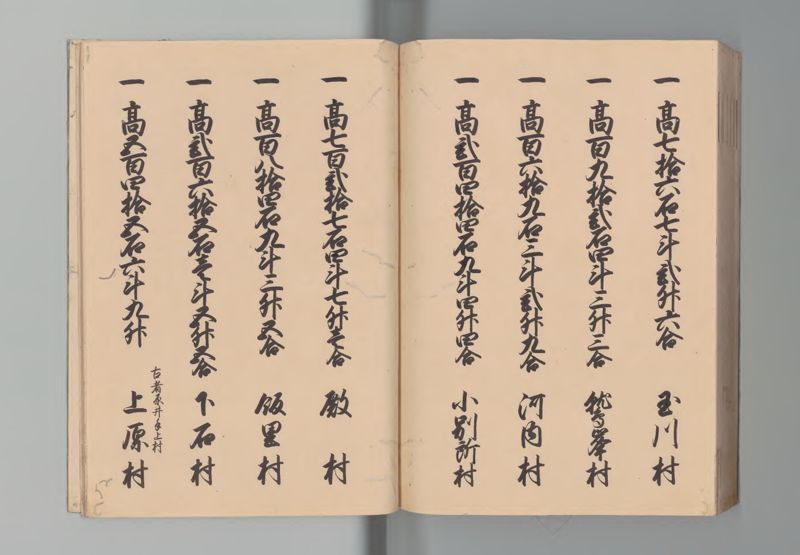 一 高七拾六石七斗弐升六合 玉川村
一 高百九拾弐石四斗三升三合 鷲峯村
一 高百六拾九石三斗弐升九合 河内村
一 高弐百四拾四石九斗四升四合 小別所村
一 高七百弐拾七石四斗七升壱合 殿村
一 高百八拾四石九斗三升五合 飯里村
一 高弐百六拾五石壱斗五升五合 下石村
一 高五百四拾五石六斗九升 上原村
古者
上村